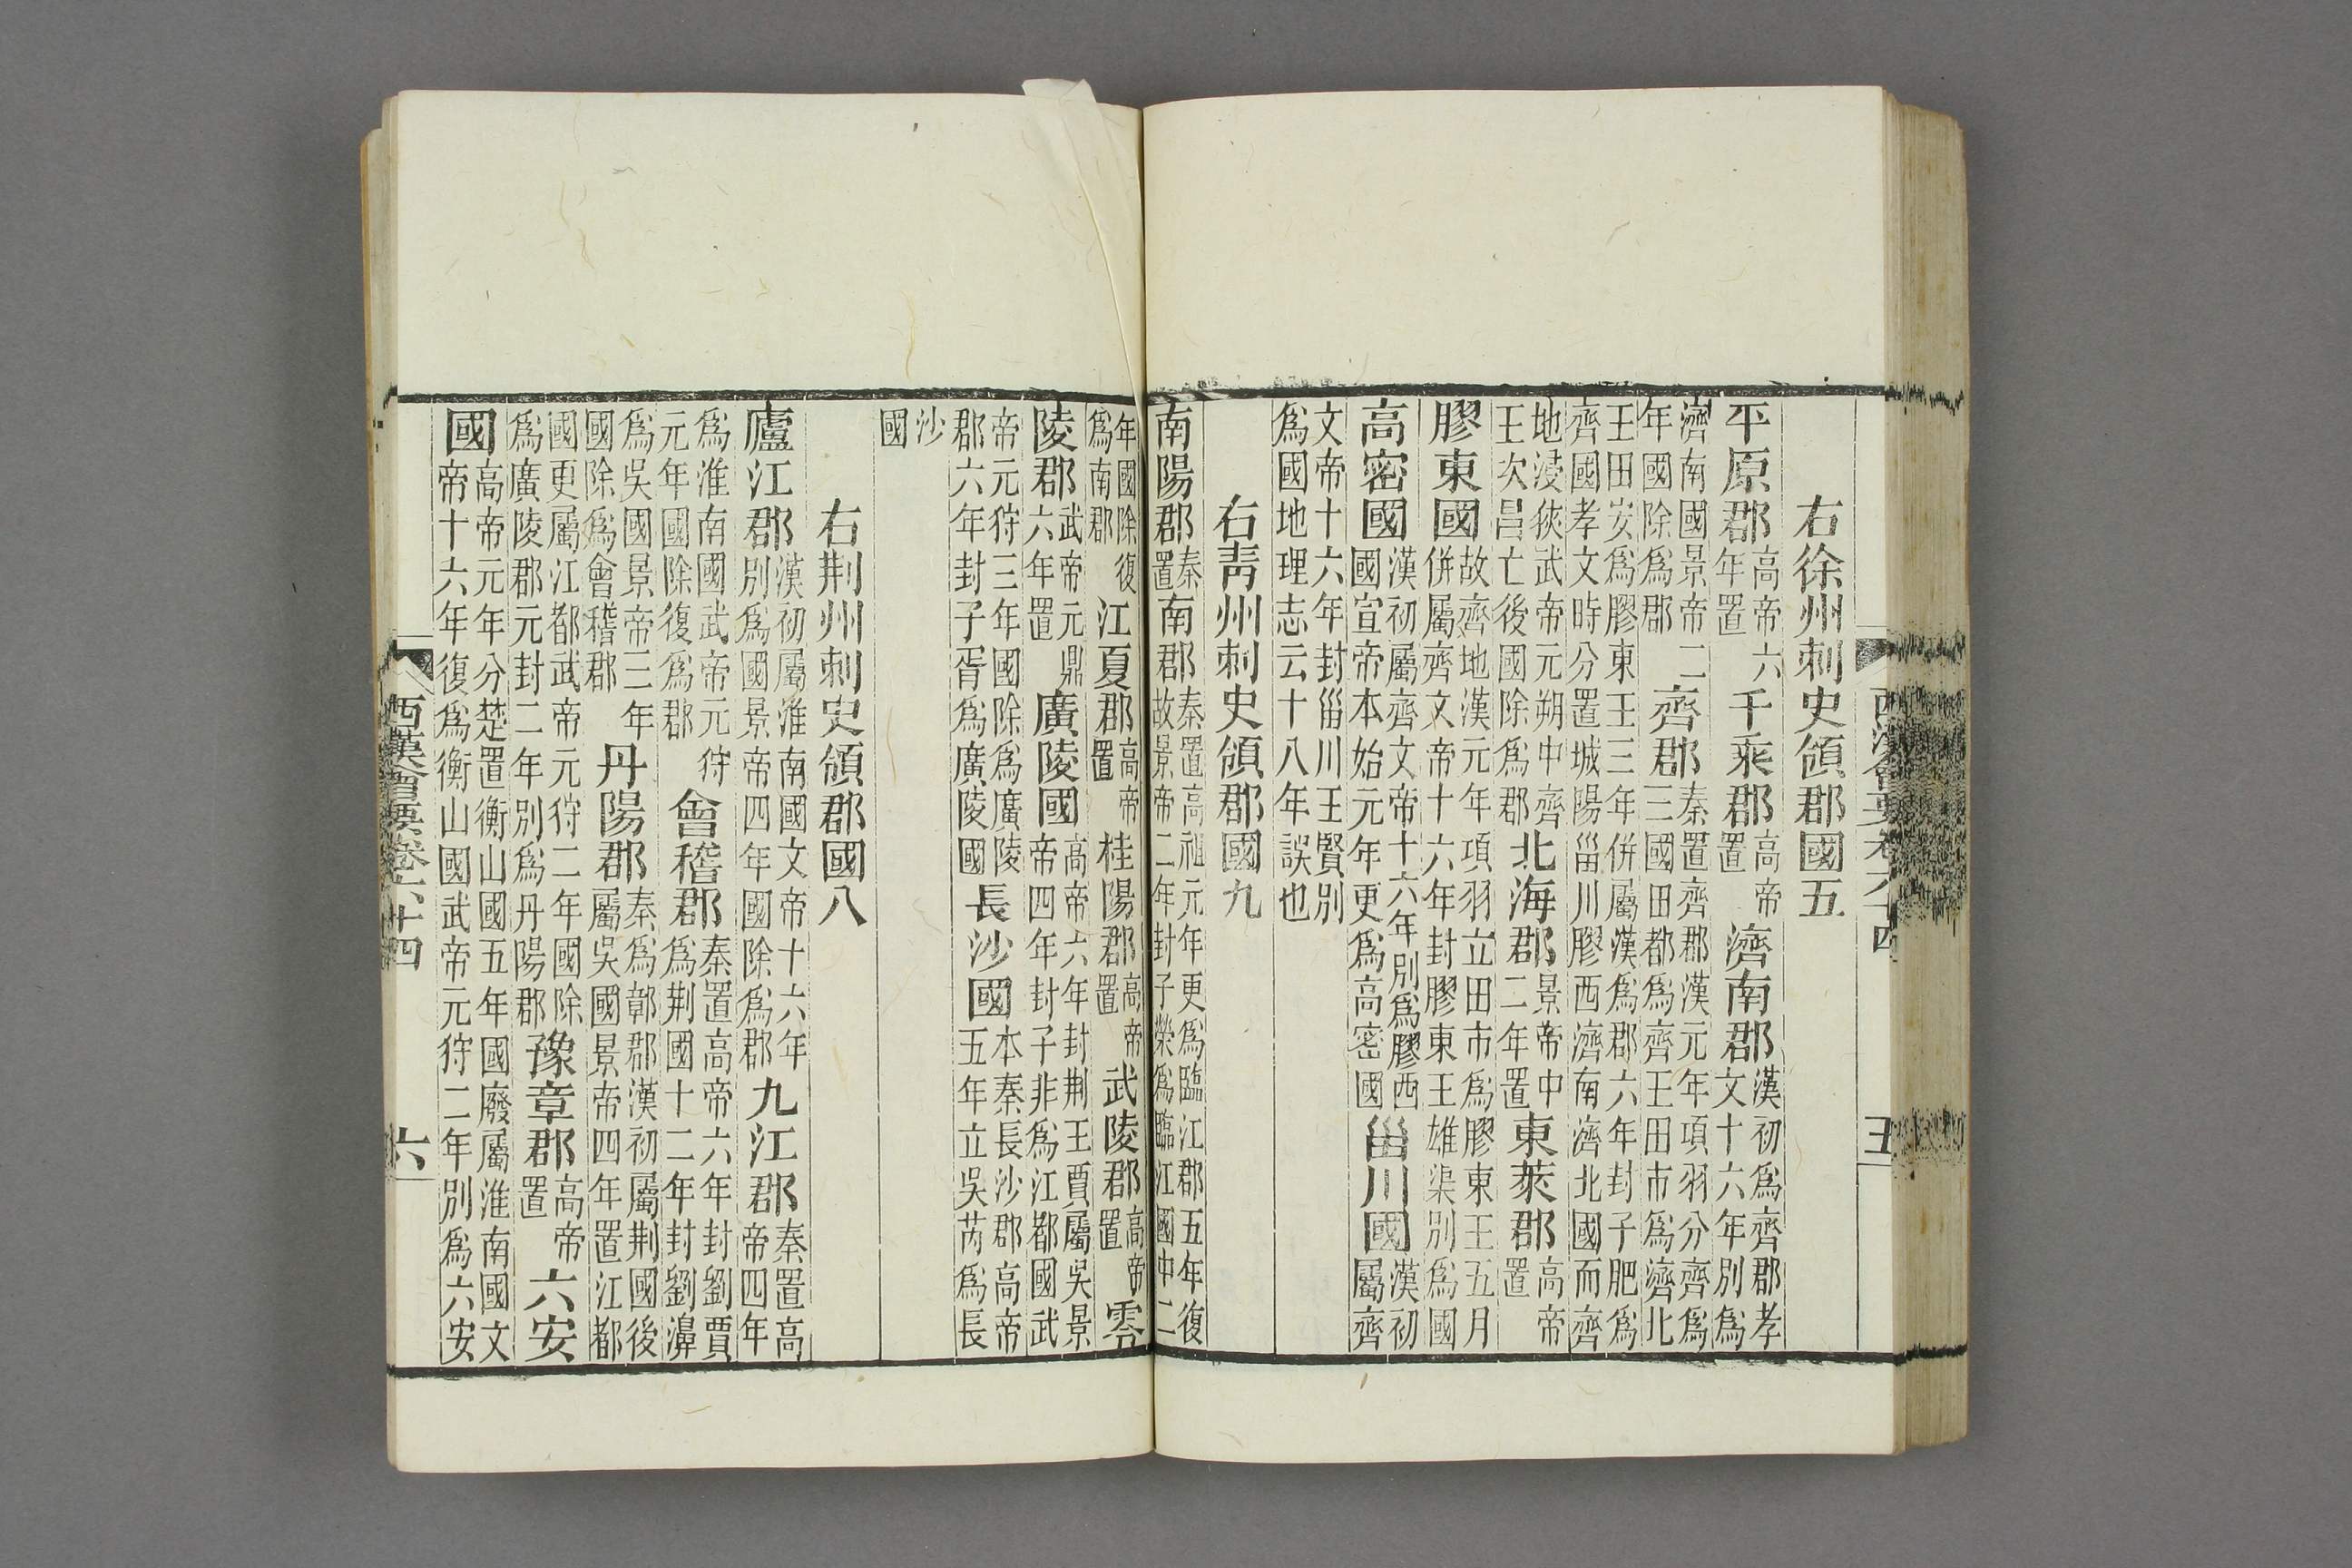 西漢會要卷六十四 五
右徐州刺史領郡國五
平原郡高帝六年置千乘郡高帝置濟南郡漢初爲齊郡孝文十六年別爲
濟南國景帝二年國除爲郡齊郡秦置齊郡漢元年項羽分齊爲三國田都爲齊王田市爲濟北
王田安爲膠東王三年併屬漢爲郡六年封子肥爲齊國孝文時分置城陽甾川膠西濟南濟北國而齊
地浸狹武帝元朔中齊王次昌亡後國除爲郡北海郡景帝中二年置東萊郡高帝置
膠東國故齊地漢元年項羽立田市爲膠東王五月併屬齊文帝十六年封膠東王雄渠別爲國
高密國漢初屬齊文帝十六年別爲膠西國宣帝本始元年更爲高密國甾川國漢初屬齊
文帝十六年封甾川王賢別爲國地理志云十八年誤也
右靑州刺史領郡國九
南陽郡秦置南郡秦置高祖元年更爲臨江郡五年復故景帝二年封子榮爲臨江國中二
年國除復爲南郡江夏郡高帝置桂陽郡高帝置武陵郡高帝置零
陵郡武帝元鼎六年置廣陵國高帝六年封荆王賈屬吳景帝四年封子非爲江都國武
帝元狩三年國除爲廣陵郡六年封子胥爲廣陵國長沙國本秦長沙郡高帝五年立吳芮爲長
沙國
右荆州刺史領郡國八
廬江郡漢初屬淮南國文帝十六年別爲國景帝四年國除爲郡九江郡秦置高帝四年
爲淮南國武帝元狩元年國除復爲郡會稽郡秦置高帝六年封劉賈爲荆國十二年封劉濞
爲吳國景帝三年國除爲會稽郡丹陽郡秦爲鄣郡漢初屬荆國後屬吳國景帝四年置江都
國更屬江都武帝元狩二年國除爲廣陵郡元封二年別爲丹陽郡豫章郡高帝置六安
國高帝元年分楚置衡山國五年國廢屬淮南國文帝十六年復爲衡山國武帝元狩二年別爲六安
西漢會要卷六十四 六